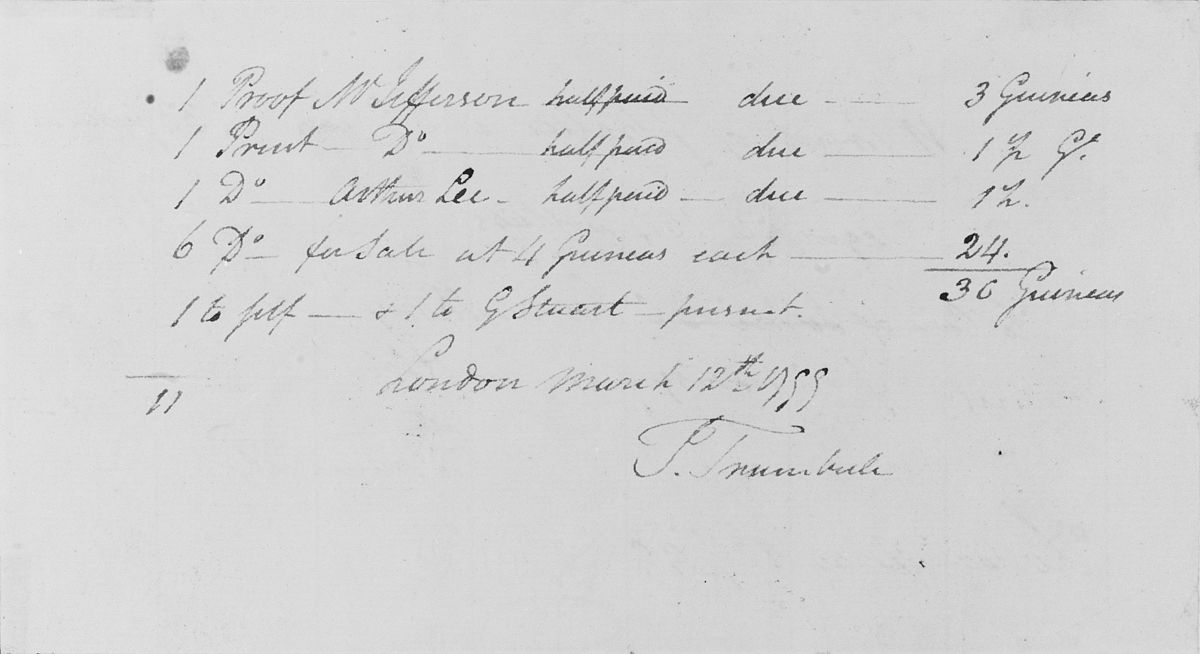 1 Proof Mr Jefferson halfpaid due 3 Guineas
1 Print Do halfpaid due 1 ½ Gs.
1 Do Arthur Lee halfpaid due 1 ½.
6 Do for Sale at 4 Guineas each 24.
30 Guineas
1 to self — & 1 to G Stuart — present.
11
London March 12th 1799
J. Trumbull